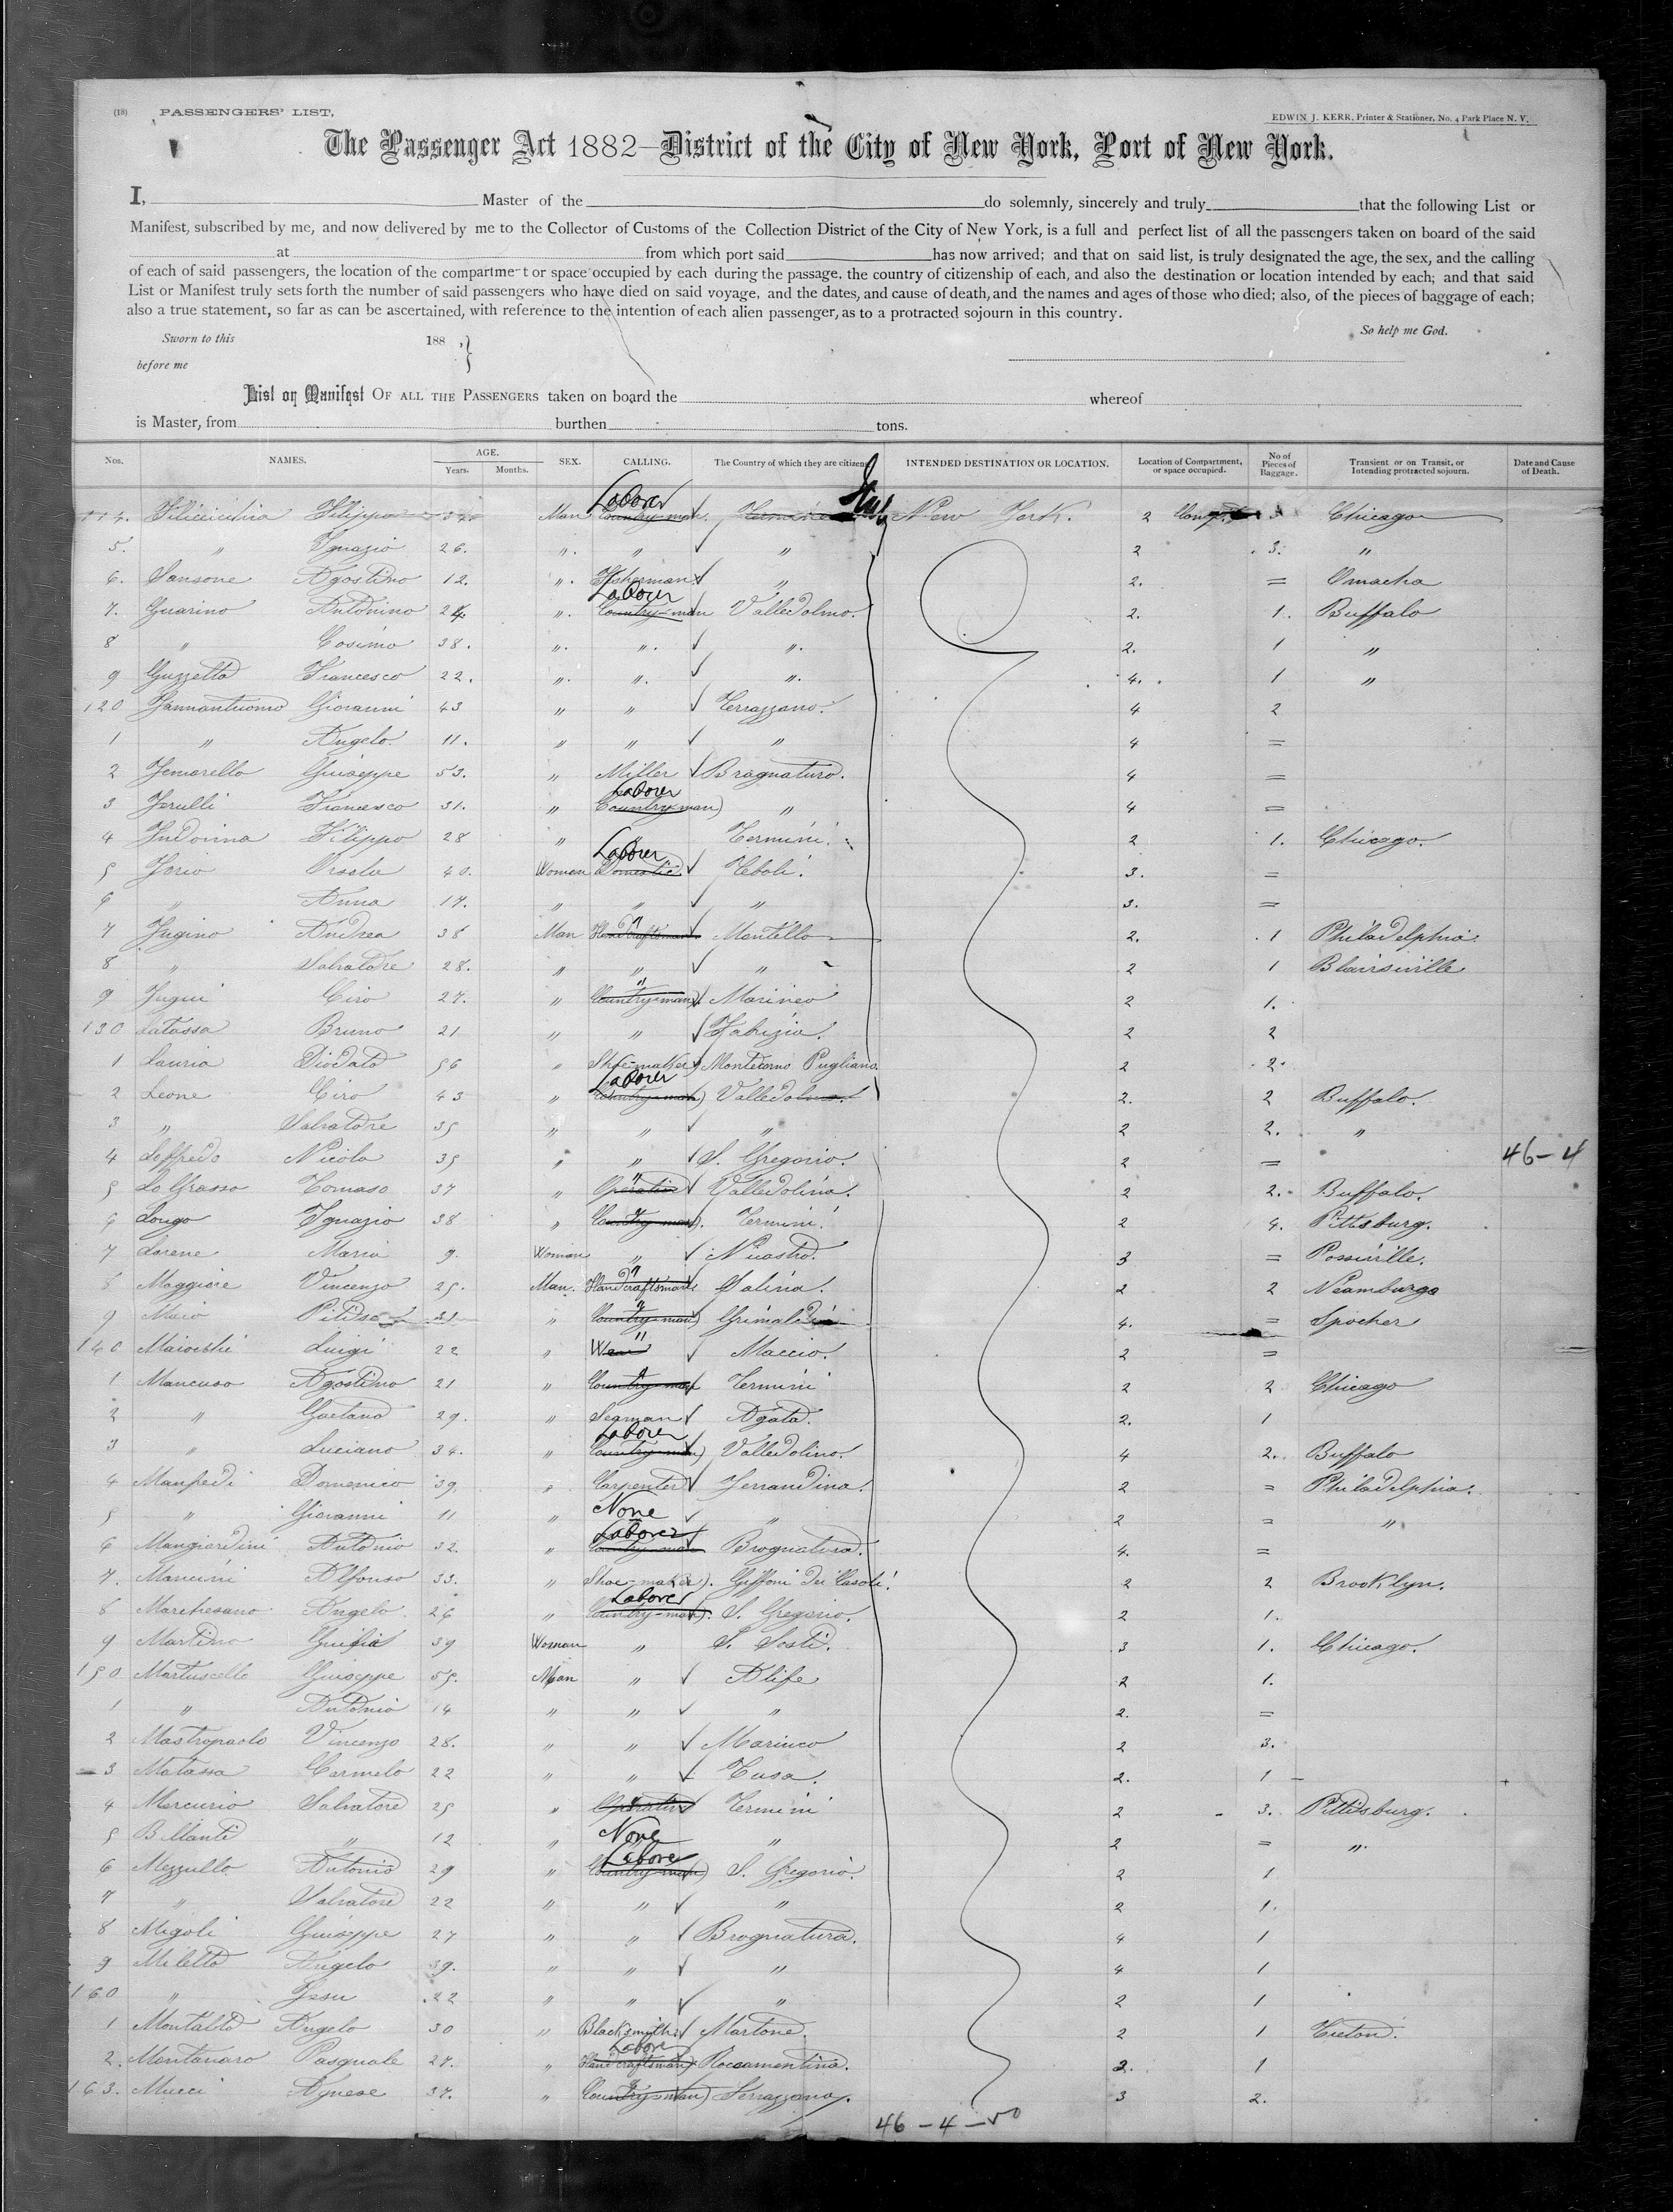 (18) PASSENGERS' LIST,
EDWIN J. KERR, Printer & Stationer, No. 4 Park Place N. Y.
The Passenger Act 1882—District of the City of New York, Port of New York.
I, Master of the do solemnly, sincerely and truly that the following List or
Manifest, subscribed by me, and now delivered by me to the Collector of Customs of the Collection District of the City of New York, is a full and perfect list of all the passengers taken on board of the said
at from which port said has now arrived; and that on said list, is truly designated the age, the sex, and the calling
of each of said passengers, the location of the compartment or space occupied by each during the passage, the country of citizenship of each, and also the destination or location intended by each; and that said
List or Manifest truly sets forth the number of said passengers who have died on said voyage, and the dates, and cause of death, and the names and ages of those who died; also, of the pieces of baggage of each;
also a true statement, so far as can be ascertained, with reference to the intention of each alien passenger, as to a protracted sojourn in this country.
So help me God.
Sworn to this 188 ,}
before me
List or Manifest OF ALL THE PASSENGERS taken on board the whereof
is Master, from burthen tons.
Nos. NAMES. AGE. Years. Months. SEX. CALLING. The Country of which they are citizens INTENDED DESTINATION OR LOCATION. Location of Compartment, or space occupied. No of Pieces of Baggage. Transient or on Transit, or Intending protracted sojourn. Date and Cause of Death.
114. Filippo 34 Man Laborer Country-man. New York. 2 3 Chicago
5. " Ignazio 26. ". " " 2 3. "
6. Sansone Agostino 12. ". Fisherman " 2. = Omacha
7. Guarino Antonino 24 ". Laborer Country-man Valledolmo. 2. 1. Buffalo
8 " Cosimo 38. ". ". ". 2. 1 "
9 Guzzetta Francesco 22. ". ". ". 4. 1 "
120 Iannantuono Giovanni 43 " " Terrazzano. 4 2
1 " Angelo. 11. " " " 4 =
2 Jemarello Giuseppe 53. " Miller Bragnaturo. 4 =
3 Jerulli Francesco 31. " Laborer Country-man " 4 =
4 Indovina Filippo 28 " " Termini. 2 1. Chicago.
5 Jorio Orsola 40. Woman Laborer Domestic Heboli. 3. =
6 " Anna 17. " " " 3. =
7 Jugino Andrea 38 Man " Handcraftsman Montello 2. 1 Philadelphia.
8 " Salvatore 28. " " " 2 1 Blairsville
9 Jugui Ciro 27. " " Country-man Marineo 2 1.
130 Latassa Bruno 21 " " Fabrizia. 2 2
1 Lauria Diodato 56 " Shoe-maker Montecorvo Pugliano 2 2.
2 Leone Ciro 43 " Laborer Country-man Valledolmo. 2. 2 Buffalo.
3 " Salvatore 35 " " " 2 2. "
4 Loffredo Nicola 35 " " S. Gregorio. 2 = 46-4
5 Lo Grasso Tomaso 37 " " Valledolina. 2 2. Buffalo.
6 Longo Ignazio 38 " " Country-man. Termini. 2 4. Pittsburg.
7 Lorene Maria 9. Woman " Nicastro. 3 =
8 Maggiore Vincenzo 25. Man. " Handcraftsman Salina. 2 2
9 31 " " Country-man 4. =
140 Luigi 22 " " Maccio. 2 =
1 Mancuso Agostino 21 " " Country-man Termini 2 2 Chicago
2 " Gaetano 29. " Seaman Agata. 2. 1
3 " Luciano 34. " Laborer Country-man Valledolino. 4 2. Buffalo
4 Manfredi Domenico 39 " Carpenter Ferrandina. 2 = Philadelphia.
5 " Giovanni 11 " None " 2 = "
6 Mangiardini Antonio 32. " Laborer Country-man Brognatura. 4. =
7. Mancini Alfonso 33. " Shoe-maker. Giffoni dei Casoli. 2 2 Brooklyn.
8 Marchesano Angelo 26 " Laborer Country-man. S. Gregorio. 2 1.
9 Martino 39 Woman " S. Sosti. 3 1. Chicago.
150 Martuscello Giuseppe 55. Man " Alife 2 1.
1 " Antonio 14 " " " 2. =
2 Mastropaolo Vincenzo 28. " " Marineo 2 3.
3 Matassa Carmelo 22 " " Tusa. 2. 1
4 Mercurio Salvatore 25 " " Termini 2 3. Pittsburg.
5 " 12 " None " 2 = ".
6 Mezzullo Antonio 29 " Laborer Country-man S. Gregorio. 2 1
7 " Salvatore 22 " " " 2 1.
8 Migoli Giuseppe 27 " " Brognatura. 4 1
9 Miletto Angelo 39. " " " 4 1
160 " 22 " " " 2 1
1 Montalto Angelo 30 " Blacksmith Martone. 2 1
2. Montanaro Pasquale 27. " Laborer Handcraftsman Roccamentina. 2. 1
163. Mucci Agnese 37. " " Country-man Serrazzano. 3 2.
46-4-50